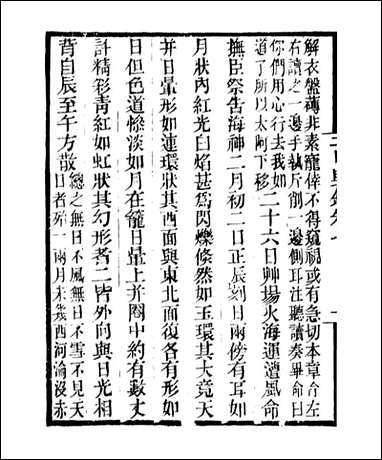 解衣盤薄非素寵倖不得窺視或有急切本章令左
右讀之一邊手執斤削一邊側耳注聽讀奏畢命曰
你們用心行去我知
道了所以太阿下移
二十六日艸場火海運遭風命
撫臣祭告海神二月初二日正辰刻日兩傍有耳如
月狀內紅光白焰甚爲閃爍倏然如玉環其大竟天
并日暈形如連環狀其西面與東北面復各有形如
日但色道慘淡如月在籠日暈上并圈中約有數丈
許精彩青紅如虹狀其幻形者二皆外向與日光相
背自辰至午方散
總之無日不風無日不雪不見天
日者殆一兩月未幾西河淪沒赤